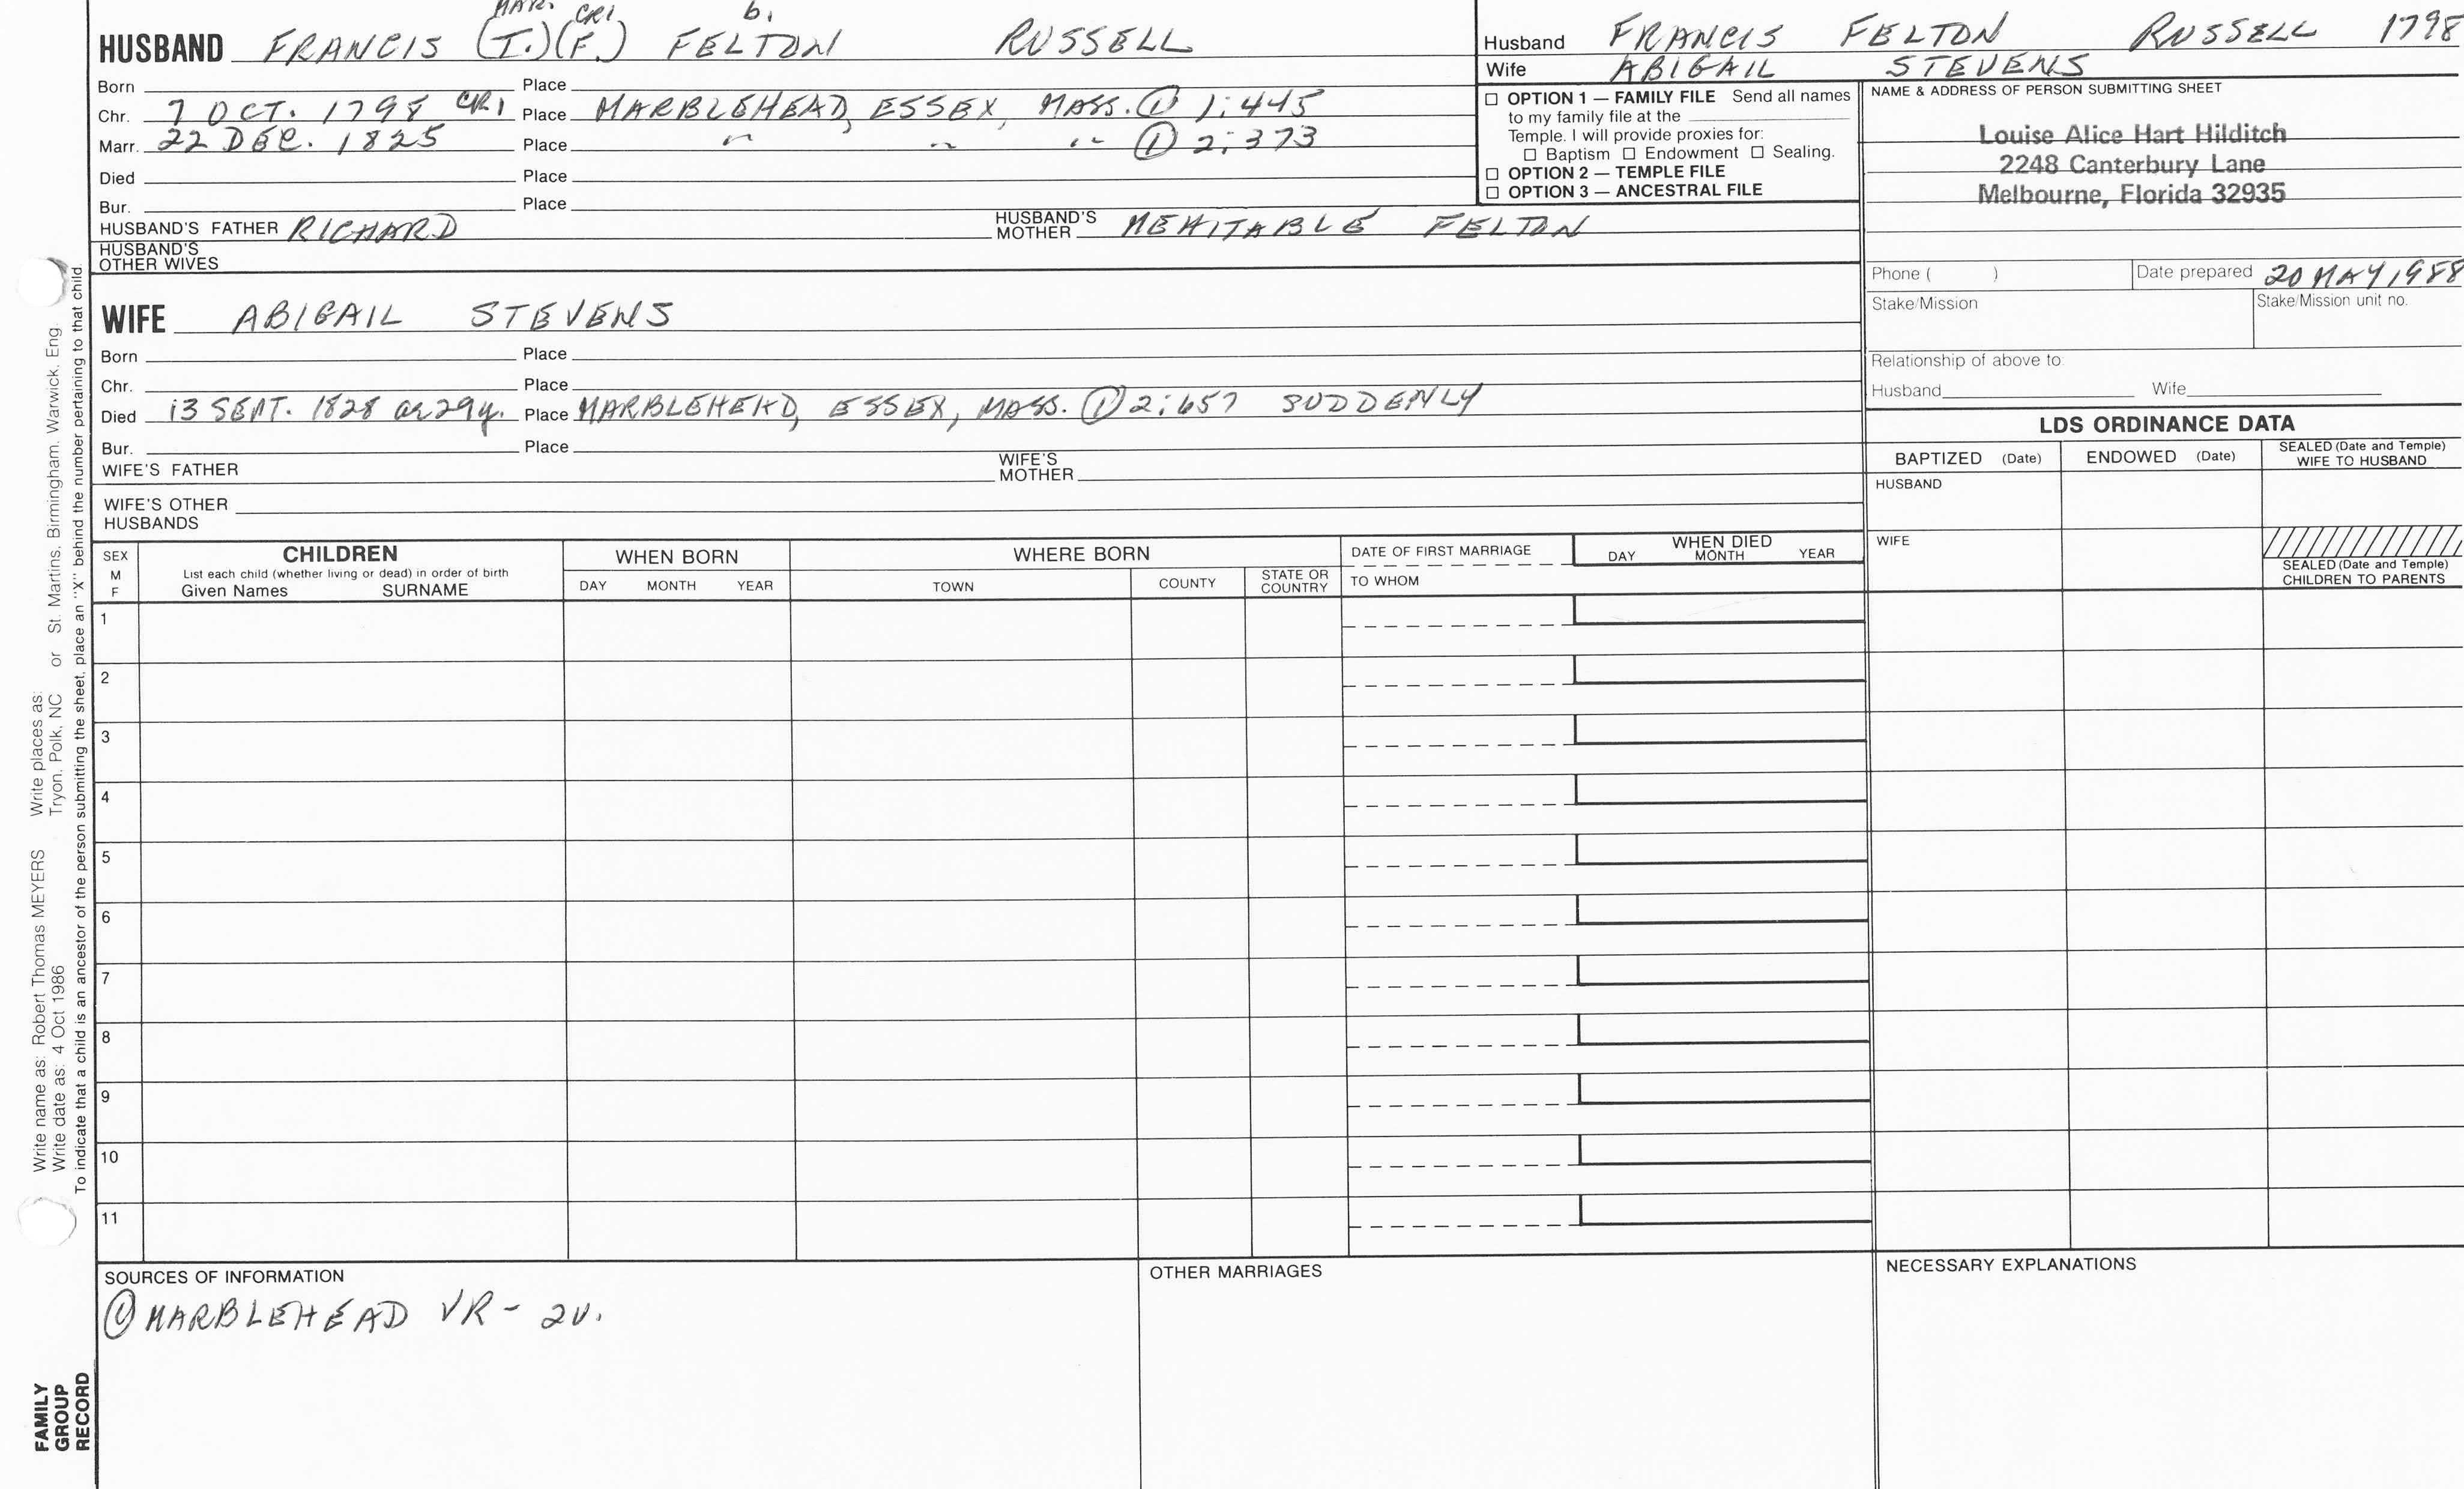 MAR. CR1 b.
HUSBAND FRANCIS (T.)(F.) FELTON RUSSELL
Born Place
Chr. 7 OCT. 1798 CR1 Place MARBLEHEAD, ESSEX, MASS. ① 1:445
Marr. 22 DEC. 1825 Place " " " ① 2:373
Died Place
Bur. Place
HUSBAND'S FATHER RICHARD HUSBAND'S MOTHER MEHITABLE FELTON
HUSBAND'S OTHER WIVES
Husband FRANCIS FELTON RUSSELL 1798
Wife ABIGAIL STEVENS
☐ OPTION 1 — FAMILY FILE Send all names
to my family file at the
Temple. I will provide proxies for:
☐ Baptism ☐ Endowment ☐ Sealing.
☐ OPTION 2 — TEMPLE FILE
☐ OPTION 3 — ANCESTRAL FILE
NAME & ADDRESS OF PERSON SUBMITTING SHEET
Louise Alice Hart Hilditch
2248 Canterbury Lane
Melbourne, Florida 32935
Phone ( ) Date prepared 20 MAY 1988
Stake/Mission Stake/Mission unit no.
Relationship of above to:
Husband Wife
WIFE ABIGAIL STEVENS
Born Place
Chr. Place
Died 13 SEPT. 1828 ae 29y. Place MARBLEHEAD, ESSEX, MASS. ① 2:657 SUDDENLY
Bur. Place
WIFE'S FATHER WIFE'S MOTHER
WIFE'S OTHER HUSBANDS
LDS ORDINANCE DATA
BAPTIZED (Date) ENDOWED (Date) SEALED (Date and Temple) WIFE TO HUSBAND
HUSBAND
WIFE
SEALED (Date and Temple) CHILDREN TO PARENTS
SEX M F
CHILDREN
List each child (whether living or dead) in order of birth
Given Names SURNAME
WHEN BORN
DAY MONTH YEAR
WHERE BORN
TOWN COUNTY STATE OR COUNTRY
DATE OF FIRST MARRIAGE
TO WHOM
WHEN DIED
DAY MONTH YEAR
1
2
3
4
5
6
7
8
9
10
11
SOURCES OF INFORMATION
① MARBLEHEAD VR - 2V.
OTHER MARRIAGES
NECESSARY EXPLANATIONS
Write name as: Robert Thomas MEYERS Write places as:
Write date as: 4 Oct 1986 Tryon, Polk, NC or St. Martins, Birmingham, Warwick, Eng
To indicate that a child is an ancestor of the person submitting the sheet, place an "X" behind the number pertaining to that child.
FAMILY
GROUP
RECORD